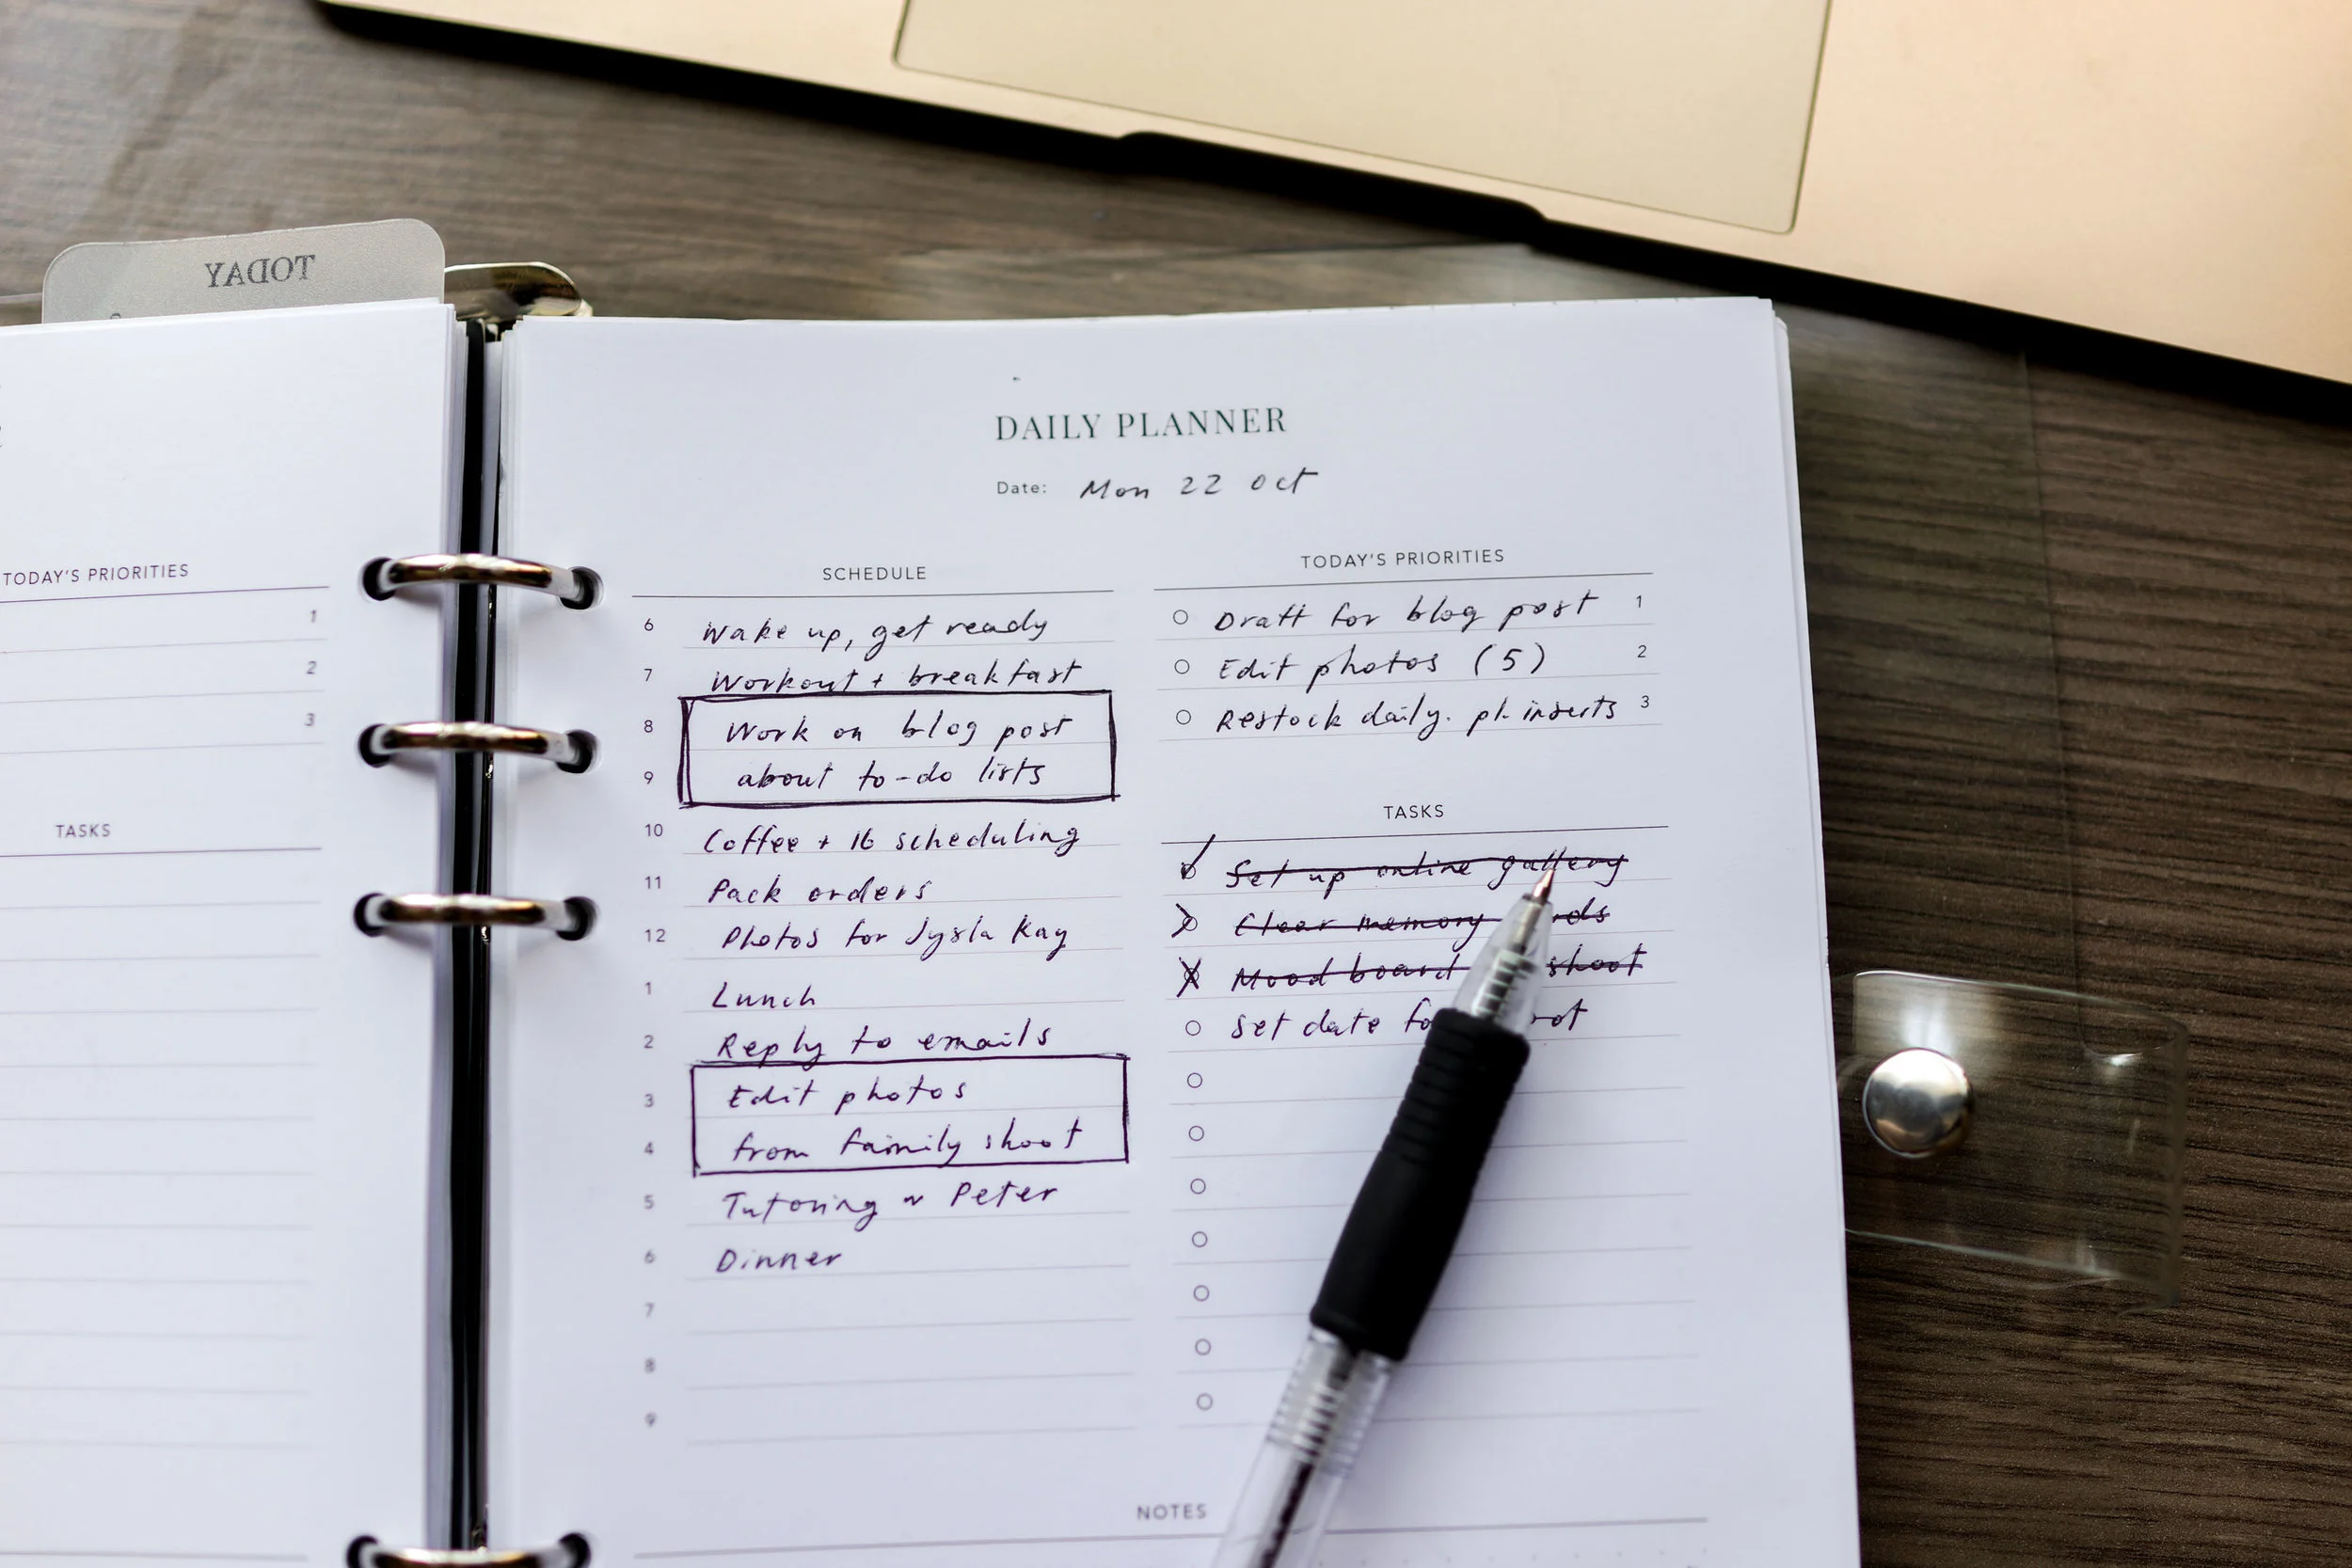 TODAY
TODAY'S PRIORITIES
1
2
3
TASKS
DAILY PLANNER
Date: Mon 22 Oct
SCHEDULE
6 Wake up, get ready
7 Workout + breakfast
8 Work on blog post
9 about to-do lists
10 Coffee + IG scheduling
11 Pack orders
12 Photos for Jysla Kay
1 Lunch
2 Reply to emails
3 Edit photos
4 from family shoot
5 Tutoring w Peter
6 Dinner
7
8
9
TODAY'S PRIORITIES
Draft for blog post 1
Edit photos (5) 2
Restock daily. pl. inserts 3
TASKS
Set up online gallery
Clear memory
Mood board shoot
Set date
NOTES